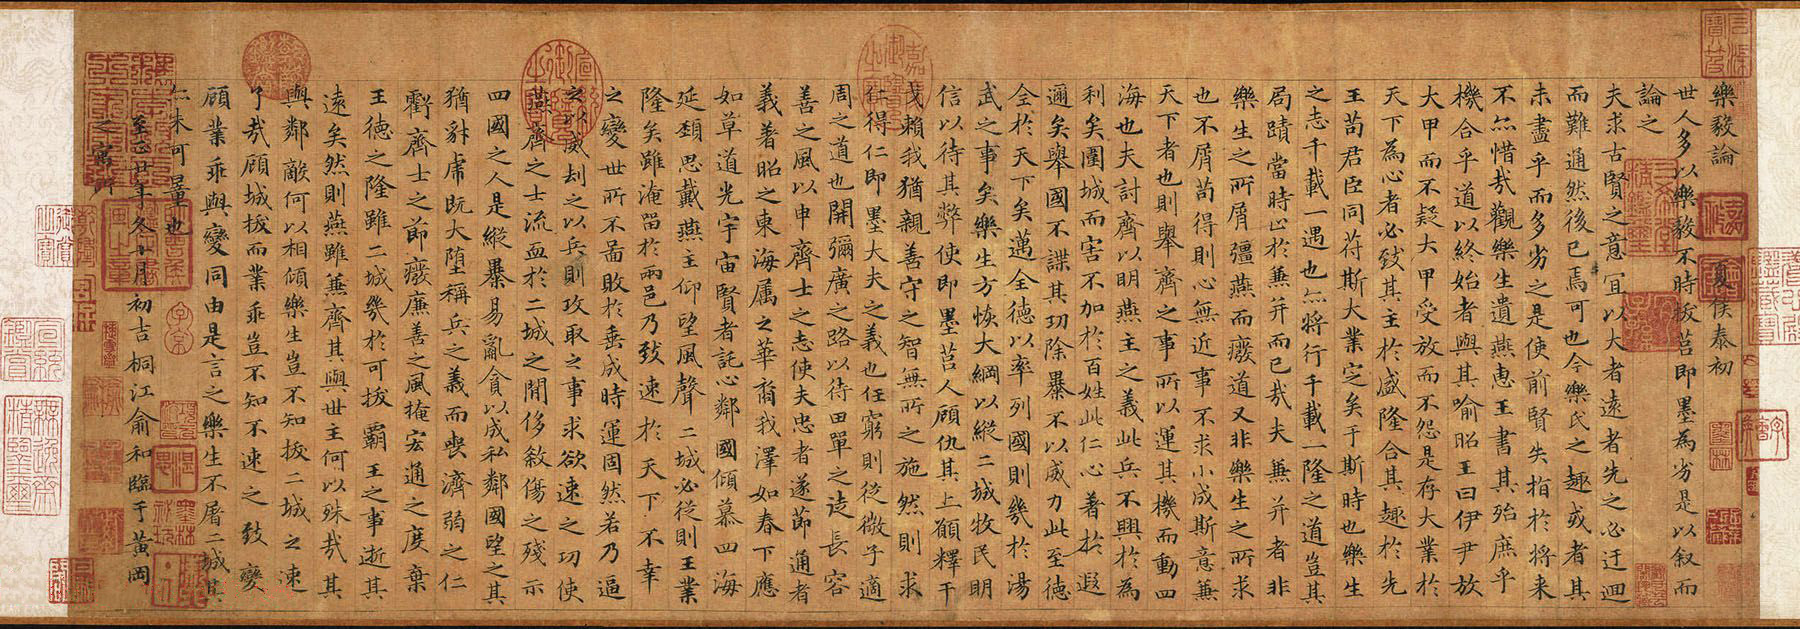 樂毅論 夏侯泰初
世人多以樂毅不時拔莒即墨為劣是以叙而
論之
夫求古賢之意宜以大者遠者先之必迂迴
而難通然後已焉可也今樂氏之趣或者其
未盡乎而多劣之是使前賢失指於將来
不亦惜哉觀樂生遺燕惠王書其殆庶乎
機合乎道以終始者與其喻昭王曰伊尹放
大甲而不疑大甲受放而不怨是存大業於
天下為心者必致其主於盛隆合其趣於先
王苟君臣同苻斯大業定矣于斯時也樂生
之志千載一遇也亦將行千載一隆之道豈其
局蹟當時止於兼并而已哉夫兼并者非
樂生之所屑彊燕而癈道又非樂生之所求
也不屑苟得則心無近事不求小成斯意兼
天下者也則舉齊之事所以運其機而動四
海也夫討齊以明燕主之義此兵不興於為
利矣圍城而害不加於百姓此仁心著於遐
邇矣舉國不謀其功除暴不以威力此至德
全於天下矣邁全德以率列國則幾於湯
武之事矣樂生方恢大綱以縱二城牧民明
信以待其弊使即墨莒人顧仇其上願釋干
戈賴我猶親善守之智無所之施然則求
仁得仁即墨大夫之義也任窮則從微子適
周之道也開彌廣之路以待田單之徒長容
善之風以申齊士之志使夫忠者遂節通者
義著昭之東海属之華裔我澤如春下應
如草道光宇宙賢者託心鄰國傾慕四海
延頸思戴燕主仰望風聲二城必從則王業
隆矣雖淹留於兩邑乃致速於天下不幸
之變世所不啚敗於垂成時運固然若乃逼
之以威刧之以兵則攻取之事求欲速之功使
燕齊之士流血於二城之閒侈敘傷之殘示
四國之人是縱暴易亂貪以成私鄰國望之其
猶豺虎既大墮稱兵之義而喪濟弱之仁
虧齊士之節癈廉善之風掩宏通之度棄
王德之隆雖二城幾於可拔霸王之事逝其
遠矣然則燕雖兼齊其與世主何以殊哉其
與鄰敵何以相傾樂生豈不知拔二城之速
了哉顧城拔而業乖豈不知不速之致變
顧業乖與變同由是言之樂生不屠二城其
亦未可量也
至正廿年冬十月初吉桐江俞和臨于黃岡
之寓所